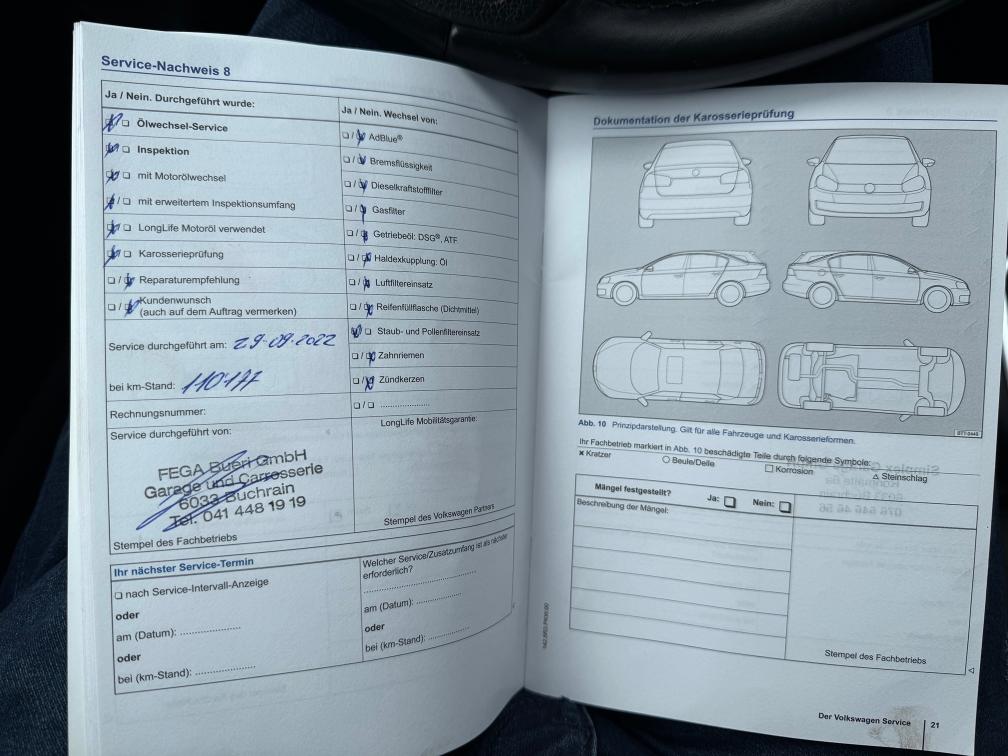 Service-Nachweis 8
Ja / Nein. Durchgeführt wurde:
☒/☐ Ölwechsel-Service
☒/☐ Inspektion
☒/☐ mit Motorölwechsel
☒/☐ mit erweitertem Inspektionsumfang
☒/☐ LongLife Motoröl verwendet
☒/☐ Karosserieprüfung
☐/☒ Reparaturempfehlung
☐/☒ Kundenwunsch
(auch auf dem Auftrag vermerken)
Service durchgeführt am: 29-09-2022
bei km-Stand: 110'177
Rechnungsnummer:
Service durchgeführt von:
FEGA Bueri GmbH
Garage und Carrosserie
6033 Buchrain
Tel. 041 448 19 19
Stempel des Fachbetriebs
Ja / Nein. Wechsel von:
☐/☒ AdBlue®
☐/☒ Bremsflüssigkeit
☐/☒ Dieselkraftstofffilter
☐/☒ Gasfilter
☐/☒ Getriebeöl: DSG®, ATF
☐/☒ Haldexkupplung: Öl
☐/☒ Luftfiltereinsatz
☐/☒ Reifenfüllflasche (Dichtmittel)
☒/☐ Staub- und Pollenfiltereinsatz
☐/☒ Zahnriemen
☐/☒ Zündkerzen
☐/☐ ......................
LongLife Mobilitätsgarantie:
Stempel des Volkswagen Partners
Ihr nächster Service-Termin
☐ nach Service-Intervall-Anzeige
oder
am (Datum): ......................
oder
bei (km-Stand): ......................
Welcher Service/Zusatzumfang ist als nächster
erforderlich?
......................
am (Datum): ......................
oder
bei (km-Stand): ......................
Dokumentation der Karosserieprüfung
Abb. 10 Prinzipdarstellung. Gilt für alle Fahrzeuge und Karosserieformen.
Ihr Fachbetrieb markiert in Abb. 10 beschädigte Teile durch folgende Symbole:
× Kratzer ○ Beule/Delle □ Korrosion △ Steinschlag
Mängel festgestellt? Ja: ☐ Nein: ☐
Beschreibung der Mängel:
Stempel des Fachbetriebs
Der Volkswagen Service 21